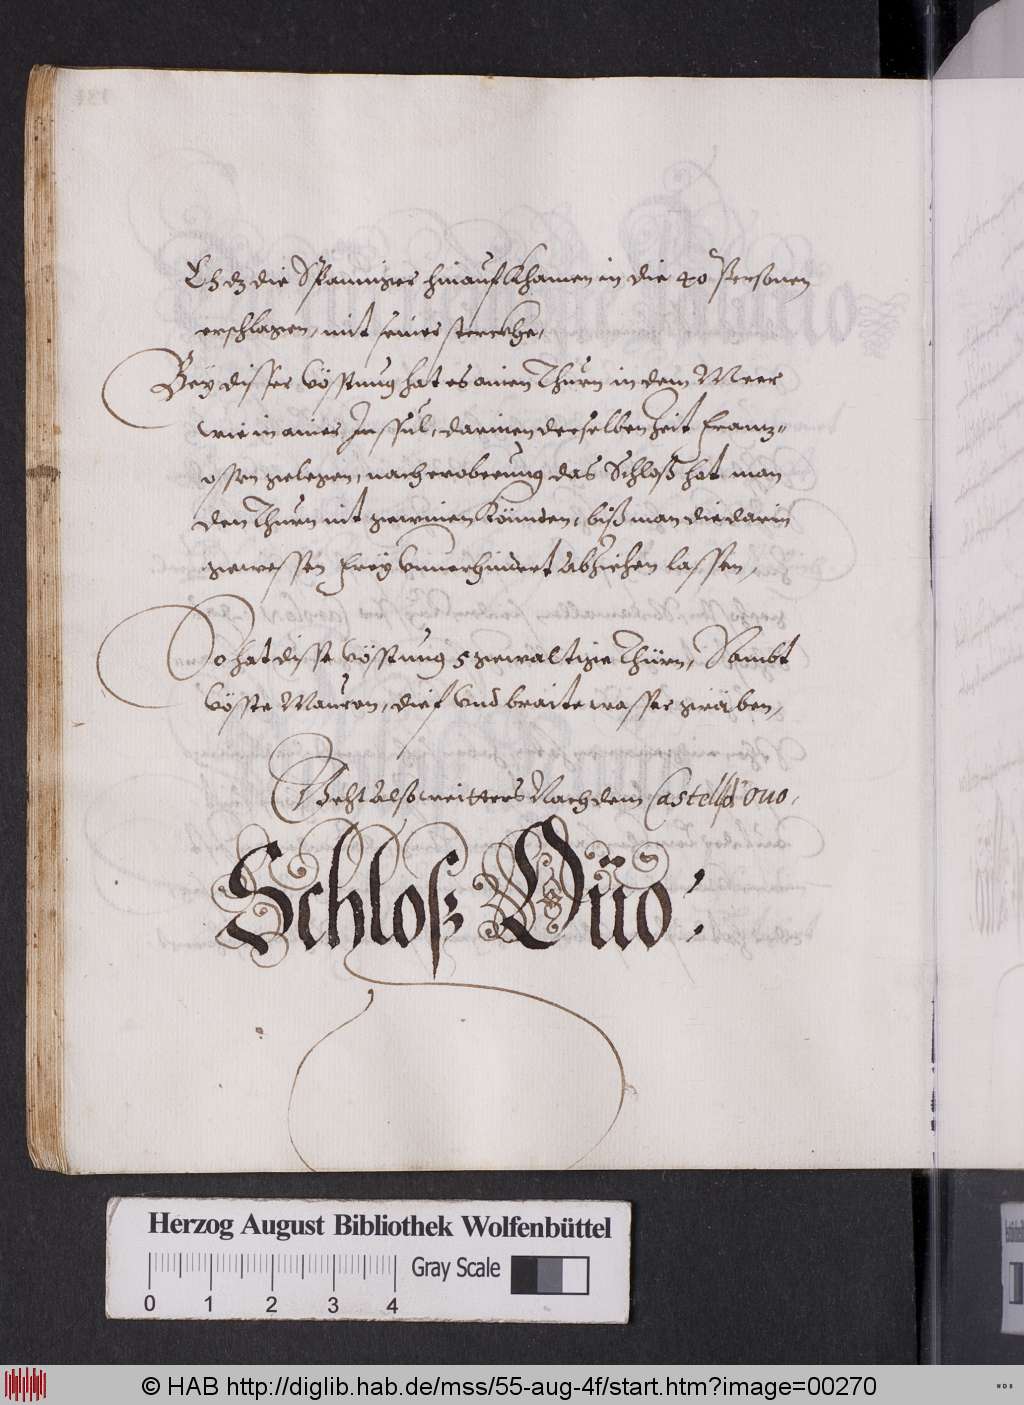 Eh dz die Spanniger hinauf Khamen in die 40 Personen
erschlagen, mit seiner sterckhe,
Bey disser Vösstung hat es ainen Thurn in dem Meer
wie in ainer Inssul, darinen derselben Zeit Frantz-
ossen gelegen, nach eroberung das Schloß hat man
den Thurn nit gewinen Könnden, biß man die darin
gewessen Frey Vnuerhindert abziehen lassen,
So hat disse Vösstung 5 gewaltige Thürn, Sambt
Vösste Mauren, dief Vnd braite wasser gräben,
Geht also weitters Nach dem Castello Ouo,
Schloß Ouo:
Herzog August Bibliothek Wolfenbüttel
Gray Scale
0 1 2 3 4
© HAB http://diglib.hab.de/mss/55-aug-4f/start.htm?image=00270